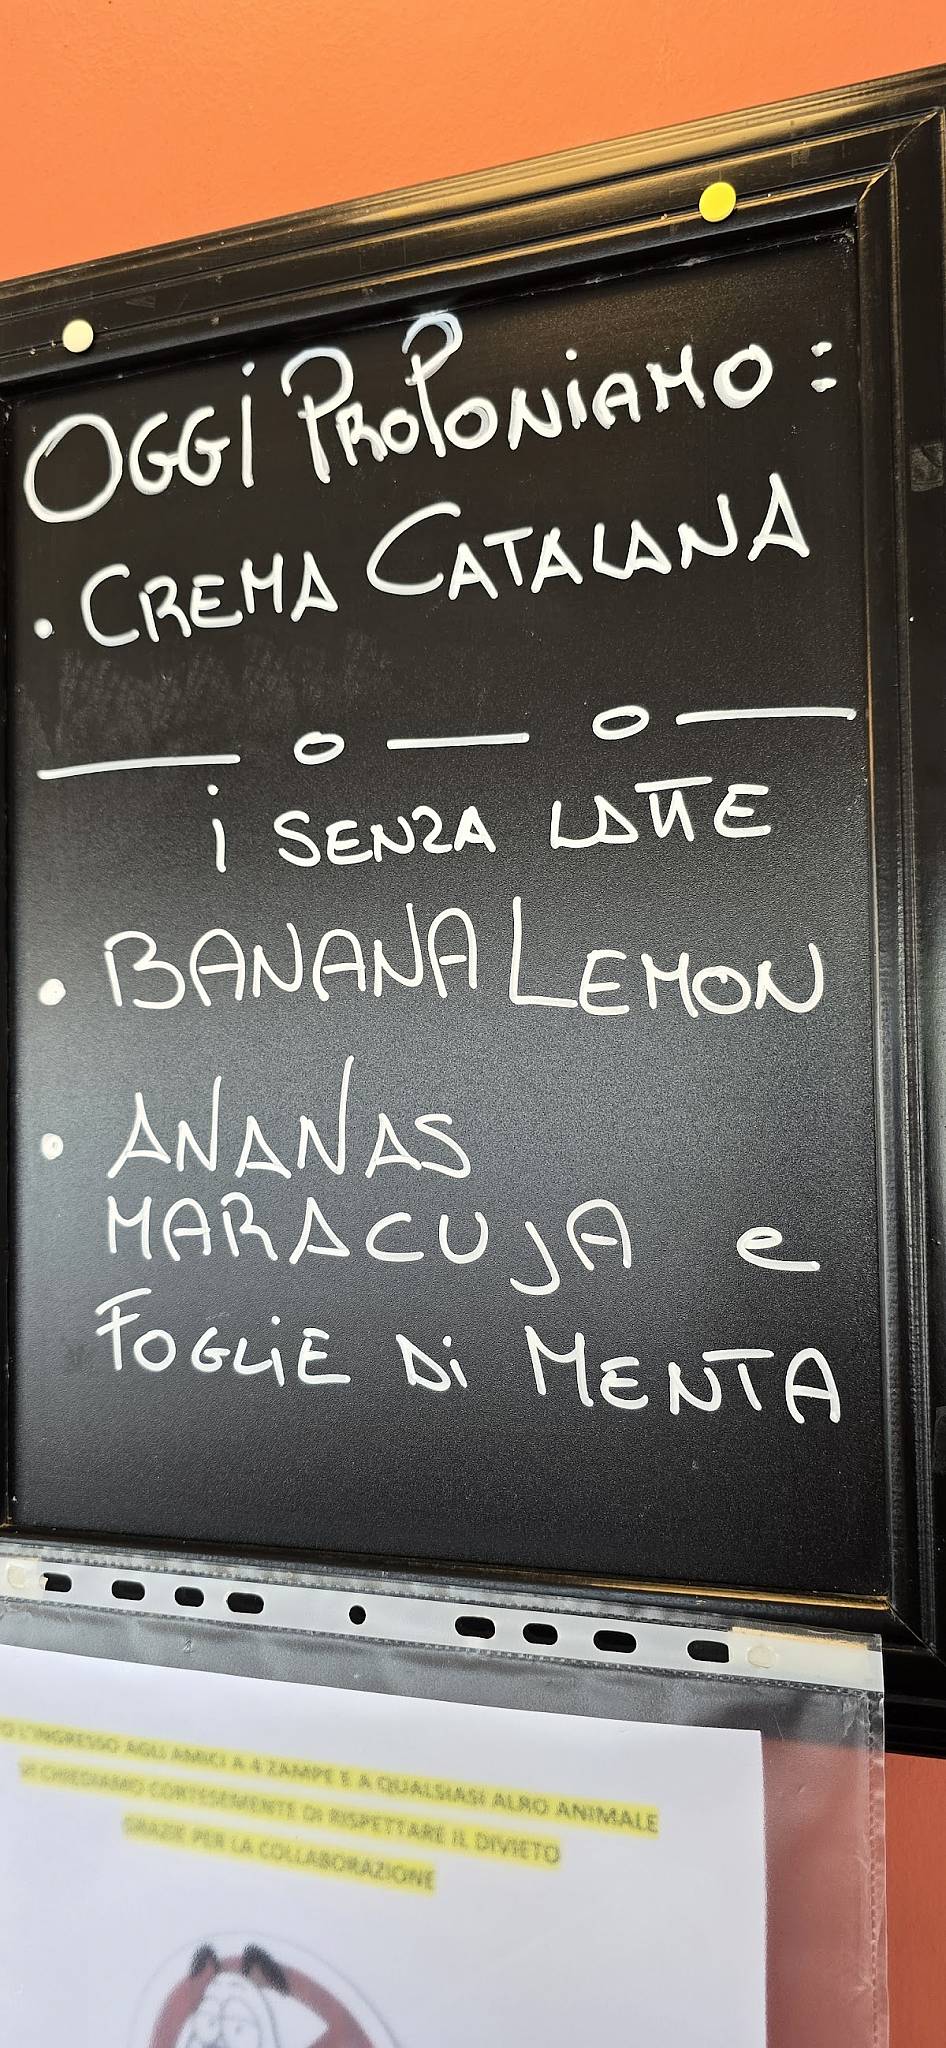 OGGI PROPONIAMO:
• CREMA CATALANA
— o — o —
i SENZA LATTE
• BANANA LEMON
• ANANAS
MARACUJA e
FOGLIE Di MENTA
L'INGRESSO AGLI AMICI A 4 ZAMPE E A QUALSIASI ALRO ANIMALE
VI CHIEDIAMO CORTESEMENTE DI RISPETTARE IL DIVIETO
GRAZIE PER LA COLLABORAZIONE